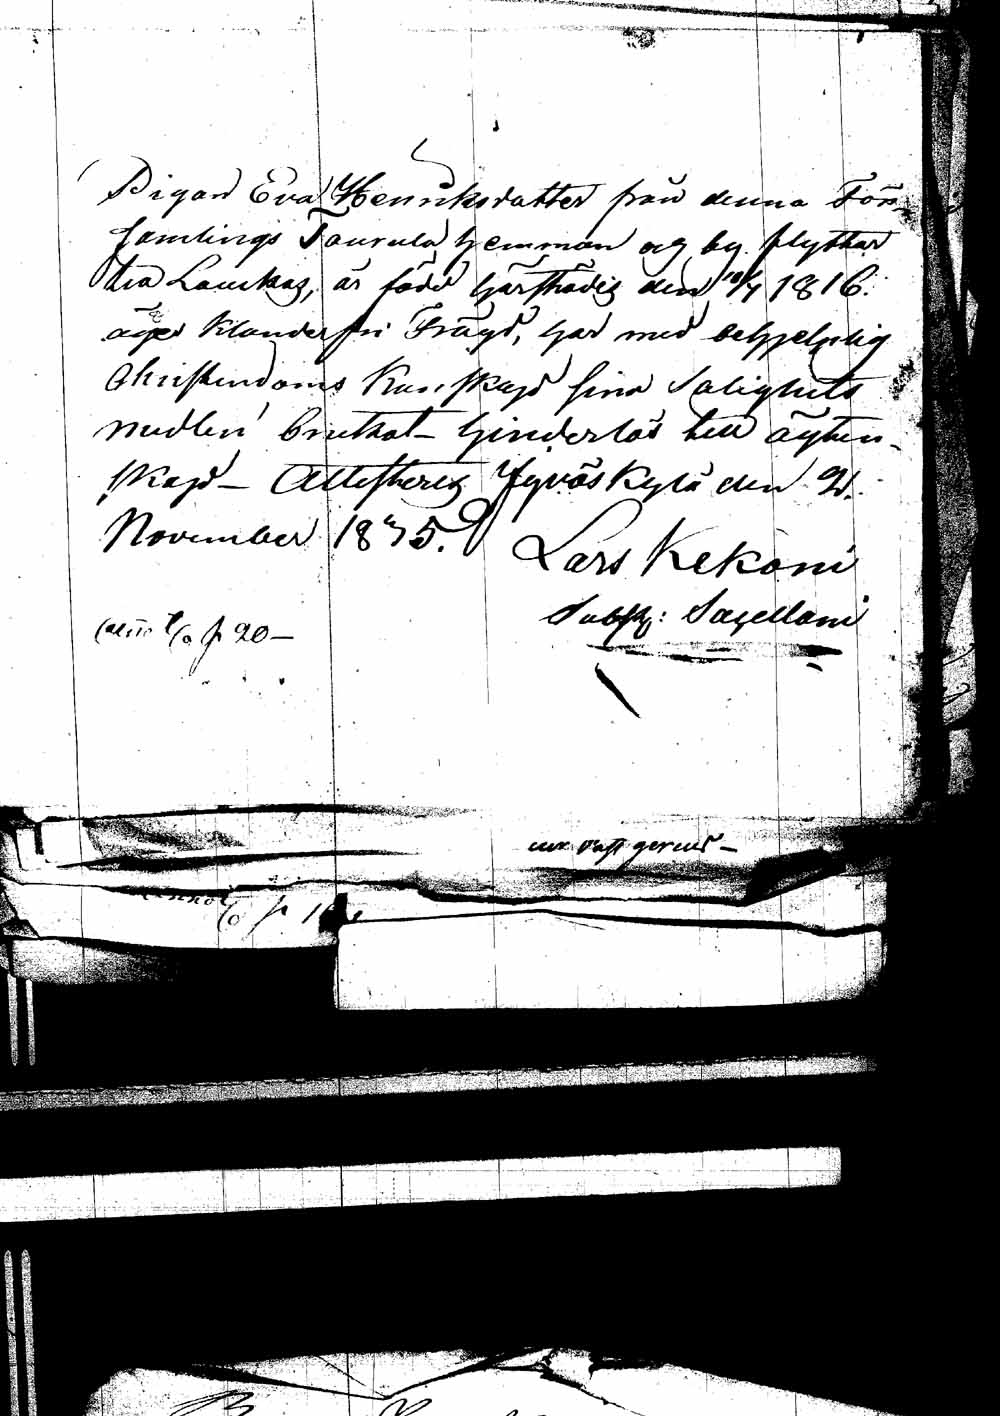 Pigan Eva Henriksdatter från denna För-
samlings Taurula hemman og by flyttar
till Laukas, är född härstädes den 10/7 1816.
äger klanderfri Frägd, har med behjelplig
Christendoms Kunskap sina Salighets
medlen brukat – hinderlös till ägten-
skap – Attesteras Jyväskylä den 2.
November 1845.
Lars Kekoni
Subst: Sacellani
p 20 –